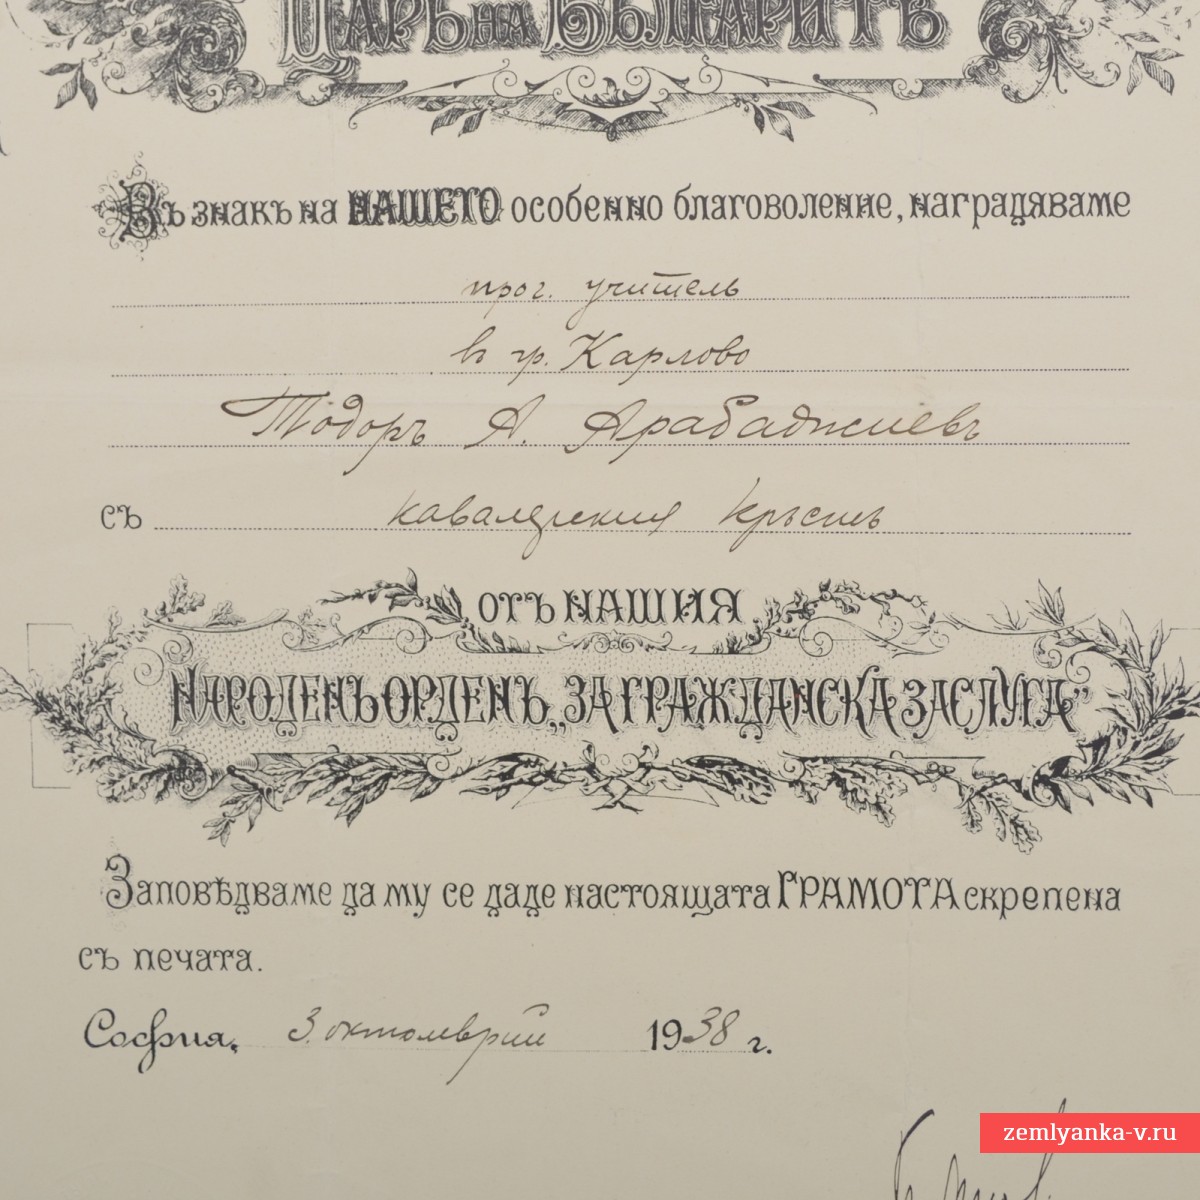 Царь на Българитѣ
Въ знакъ на НАШЕТО особенно благоволение, наградяваме
прог. учитель
въ гр. Карлово
Тодоръ А. Арабаджиевъ
съ кавалерския кръстъ
отъ НАШИЯ
НАРОДЕНЪ ОРДЕНЪ „ЗА ГРАЖДАНСКА ЗАСЛУГА”
Заповѣдваме да му се даде настоящата ГРАМОТА скрепена
съ печата.
София, 3. октомврий 1938 г.
zemlyanka-v.ru